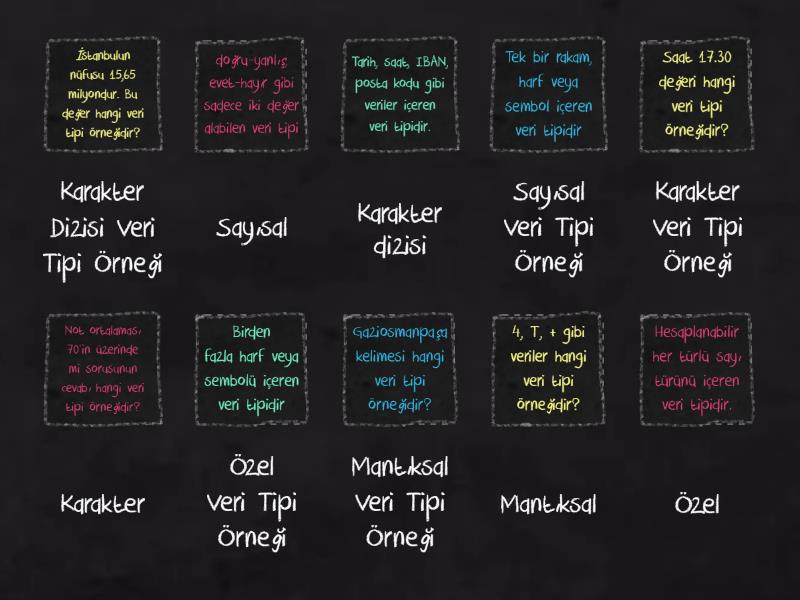 İstanbulun
nüfusu 15,65
milyondur. Bu
değer hangi veri
tipi örneğidir?
doğru-yanlış
evet-hayır gibi
sadece iki değer
alabilen veri tipi
Tarih, saat, IBAN,
posta kodu gibi
veriler içeren
veri tipidir.
Tek bir rakam,
harf veya
sembol içeren
veri tipidir
Saat 17.30
değeri hangi
veri tipi
örneğidir?
Karakter
Dizisi Veri
Tipi Örneği
Sayısal
Karakter
dizisi
Sayısal
Veri Tipi
Örneği
Karakter
Veri Tipi
Örneği
Not ortalaması
70'in üzerinde
mi sorusunun
cevabı hangi veri
tipi örneğidir?
Birden
fazla harf veya
sembolü içeren
veri tipidir
Gaziosmanpaşa
kelimesi hangi
veri tipi
örneğidir?
4, T, + gibi
veriler hangi
veri tipi
örneğidir?
Hesaplanabilir
her türlü sayı
türünü içeren
veri tipidir.
Karakter
Özel
Veri Tipi
Örneği
Mantıksal
Veri Tipi
Örneği
Mantıksal
Özel